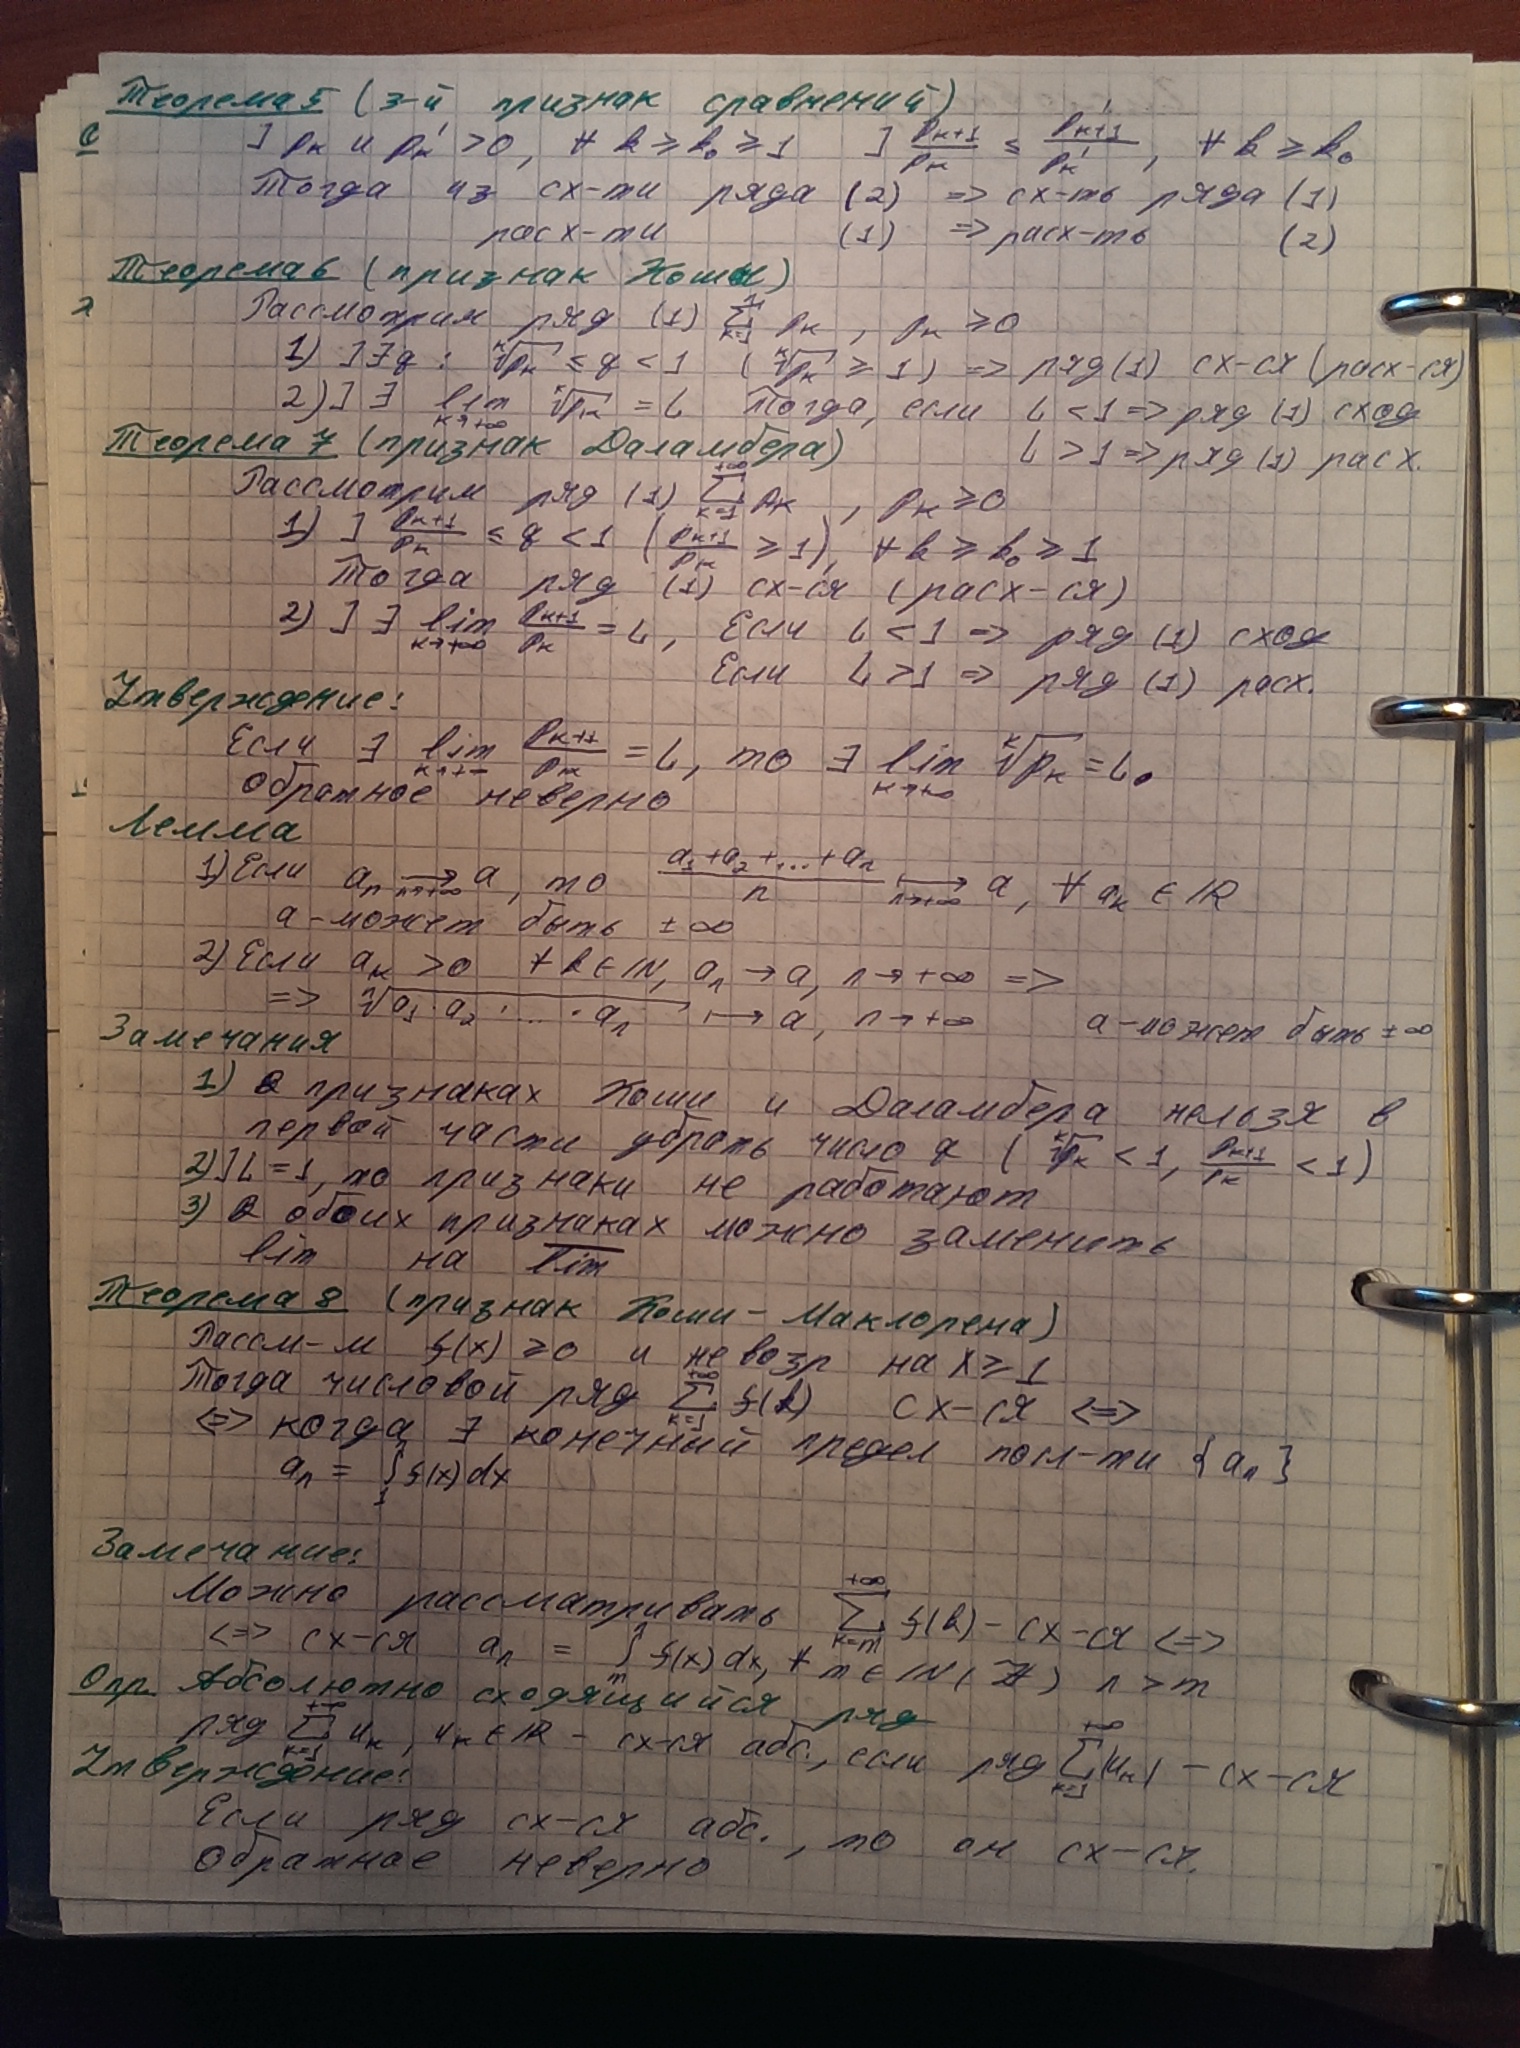 Теорема 5 (3-й признак сравнений)
] pₖ и pₖ' > 0, ∀ k ≥ k₀ ≥ 1 ] pₖ₊₁/pₖ ≤ p'ₖ₊₁/pₖ', ∀ k ≥ k₀
Тогда из сх-ти ряда (2) => сх-ть ряда (1)
расх-ти (1) => расх-ть (2)
Теорема 6 (признак Коши)
Рассмотрим ряд (1) ∑ₖ₌₁ pₖ, pₖ ≥ 0
1) ] ∃ q : ᵏ√pₖ ≤ q < 1 (ᵏ√pₖ ≥ 1) => ряд (1) сх-ся (расх-ся)
2) ] ∃ lim k→+∞ ᵏ√pₖ = L Тогда, если L < 1 => ряд (1) сход
L > 1 => ряд (1) расх.
Теорема 7 (признак Даламбера)
Рассмотрим ряд (1) ∑ₖ₌₁^{+∞} pₖ, pₖ ≥ 0
1) ] pₖ₊₁/pₖ ≤ q < 1 (pₖ₊₁/pₖ ≥ 1), ∀ k ≥ k₀ ≥ 1
Тогда ряд (1) сх-ся (расх-ся)
2) ] ∃ lim k→+∞ pₖ₊₁/pₖ = L, Если L < 1 => ряд (1) сход
Если L > 1 => ряд (1) расх.
Утверждение:
Если ∃ lim k→+∞ pₖ₊₁/pₖ = L, то ∃ lim k→+∞ ᵏ√pₖ = L.
Обратное неверно
Лемма
1) Если aₙ → a n→+∞, то (a₁+a₂+...+aₙ)/n ↦ a n→+∞, ∀ aₖ ∈ ℝ
a - может быть ±∞
2) Если aₖ > 0 ∀ k ∈ ℕ, aₙ → a, n→+∞ =>
=> ⁿ√(a₁·a₂·...·aₙ) ↦ a, n→+∞ a - может быть ±∞
Замечания
1) В признаках Коши и Даламбера нельзя в
первой части убрать число q (ᵏ√pₖ < 1, pₖ₊₁/pₖ < 1)
2) ] L = 1, то признаки не работают
3) В обоих признаках можно заменить
lim на l̅i̅m̅
Теорема 8 (признак Коши - Маклорена)
Рассм-м f(x) ≥ 0 и не возр на x ≥ 1
Тогда числовой ряд ∑ₖ₌₁^{+∞} f(k) сх-ся <=>
<=> когда ∃ конечный предел посл-ти {aₙ}
aₙ = ∫₁ⁿ f(x)dx
Замечание:
Можно рассматривать ∑ₖ₌ₘ^{+∞} f(k) - сх-ся <=>
<=> сх-ся aₙ = ∫ₘⁿ f(x)dx, ∀ m ∈ ℕ (ℤ) n > m
Опр. Абсолютно сходящийся ряд
ряд ∑ₖ₌₁^{+∞} uₖ, uₖ ∈ ℝ - сх-ся абс., если ряд ∑ₖ₌₁^{+∞} |uₖ| - сх-ся
Утверждение:
Если ряд сх-ся абс., то он сх-ся.
Обратное неверно